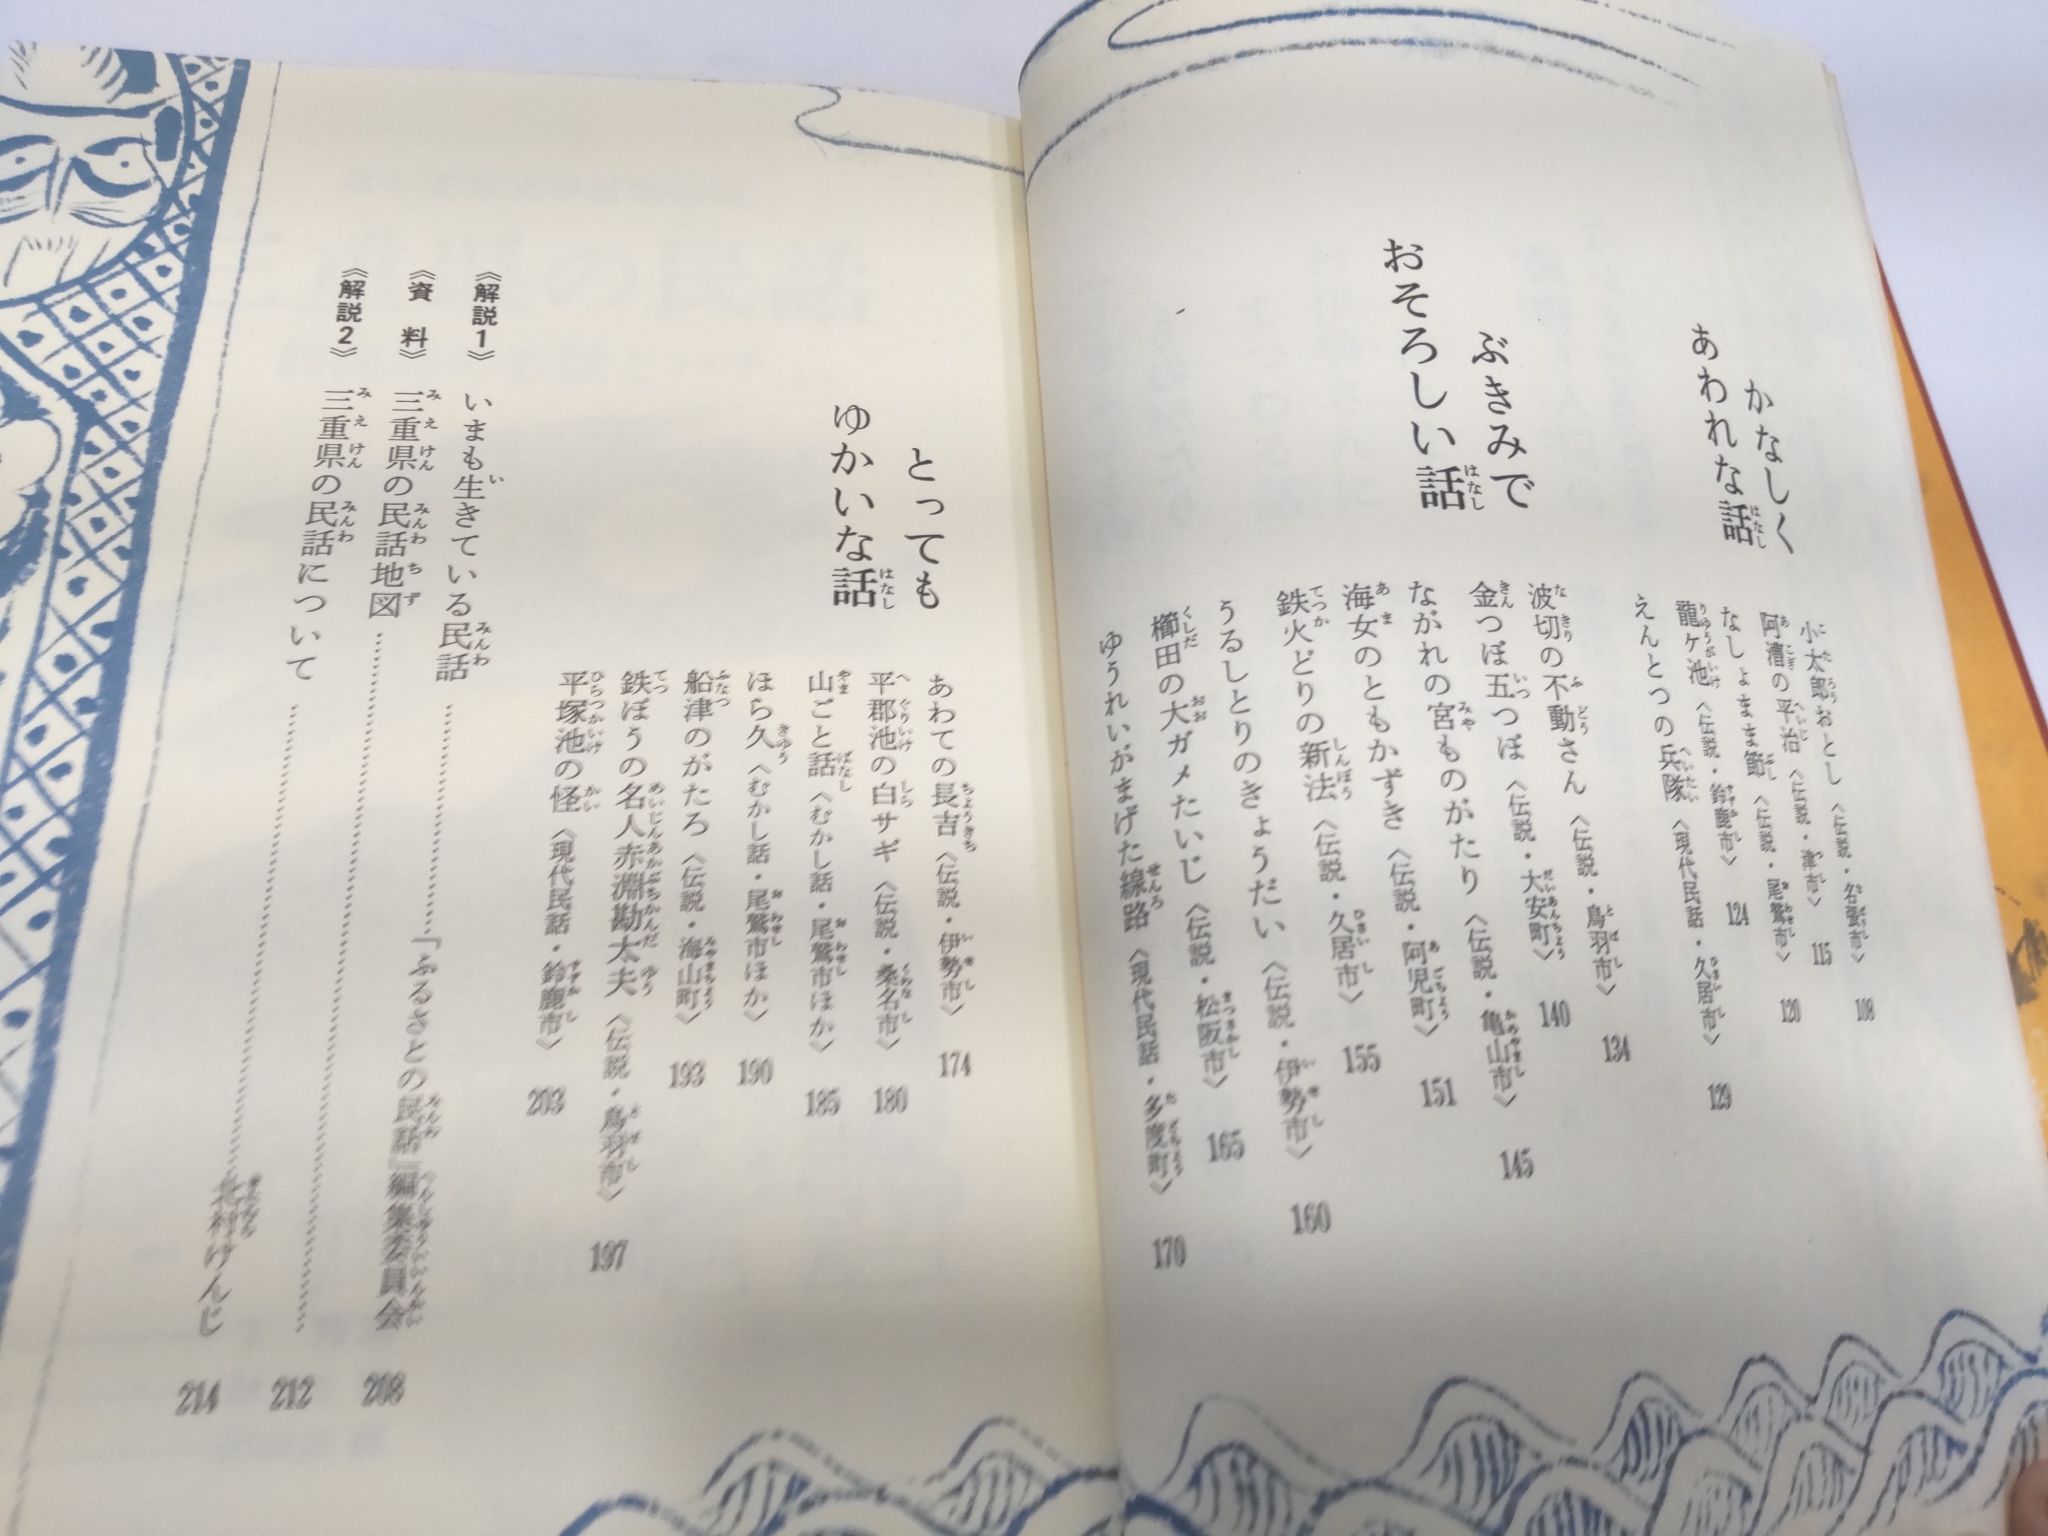 かなしく
あわれな話
小太郎おとし〈伝説・名張市〉 108
阿漕の平治〈伝説・津市〉 115
なしょまま節〈伝説・尾鷲市〉 120
龍ケ池〈伝説・鈴鹿市〉 124
えんとつの兵隊〈現代民話・久居市〉 129
ぶきみで
おそろしい話
波切の不動さん〈伝説・鳥羽市〉 134
金つぼ五つぼ〈伝説・大安町〉 140
ながれの宮ものがたり〈伝説・亀山市〉 145
海女のともかずき〈伝説・阿児町〉 151
鉄火どりの新法〈伝説・久居市〉 155
うるしとりのきょうだい〈伝説・伊勢市〉 160
櫛田の大ガメたいじ〈伝説・松阪市〉 165
ゆうれいがまげた線路〈現代民話・多度町〉 170
とっても
ゆかいな話
あわての長吉〈伝説・伊勢市〉 174
平郡池の白サギ〈伝説・桑名市〉 180
山ごと話〈むかし話・尾鷲市ほか〉 185
ほら久〈むかし話・尾鷲市ほか〉 190
船津のがたろ〈伝説・海山町〉 193
鉄ぽうの名人赤淵勘太夫〈伝説・鳥羽市〉 197
平塚池の怪〈現代民話・鈴鹿市〉 203
《解説1》 いまも生きている民話……『ふるさとの民話』編集委員会 208
《資料》 三重県の民話地図…… 212
《解説2》 三重県の民話について……北村けんじ 214